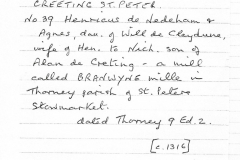 CREETING ST. PETER.
No. 39 Henricus de Nedeham &
Agnes, dau. of Will de Cleydune,
wife of Hen. to Nich. son of
Alan de Creting - a mill
called BRANWYNE mille in
Thorney parish of St. Peters
Stowmarket.
dated Thorney 9 Ed. 2.
[c. 1316]